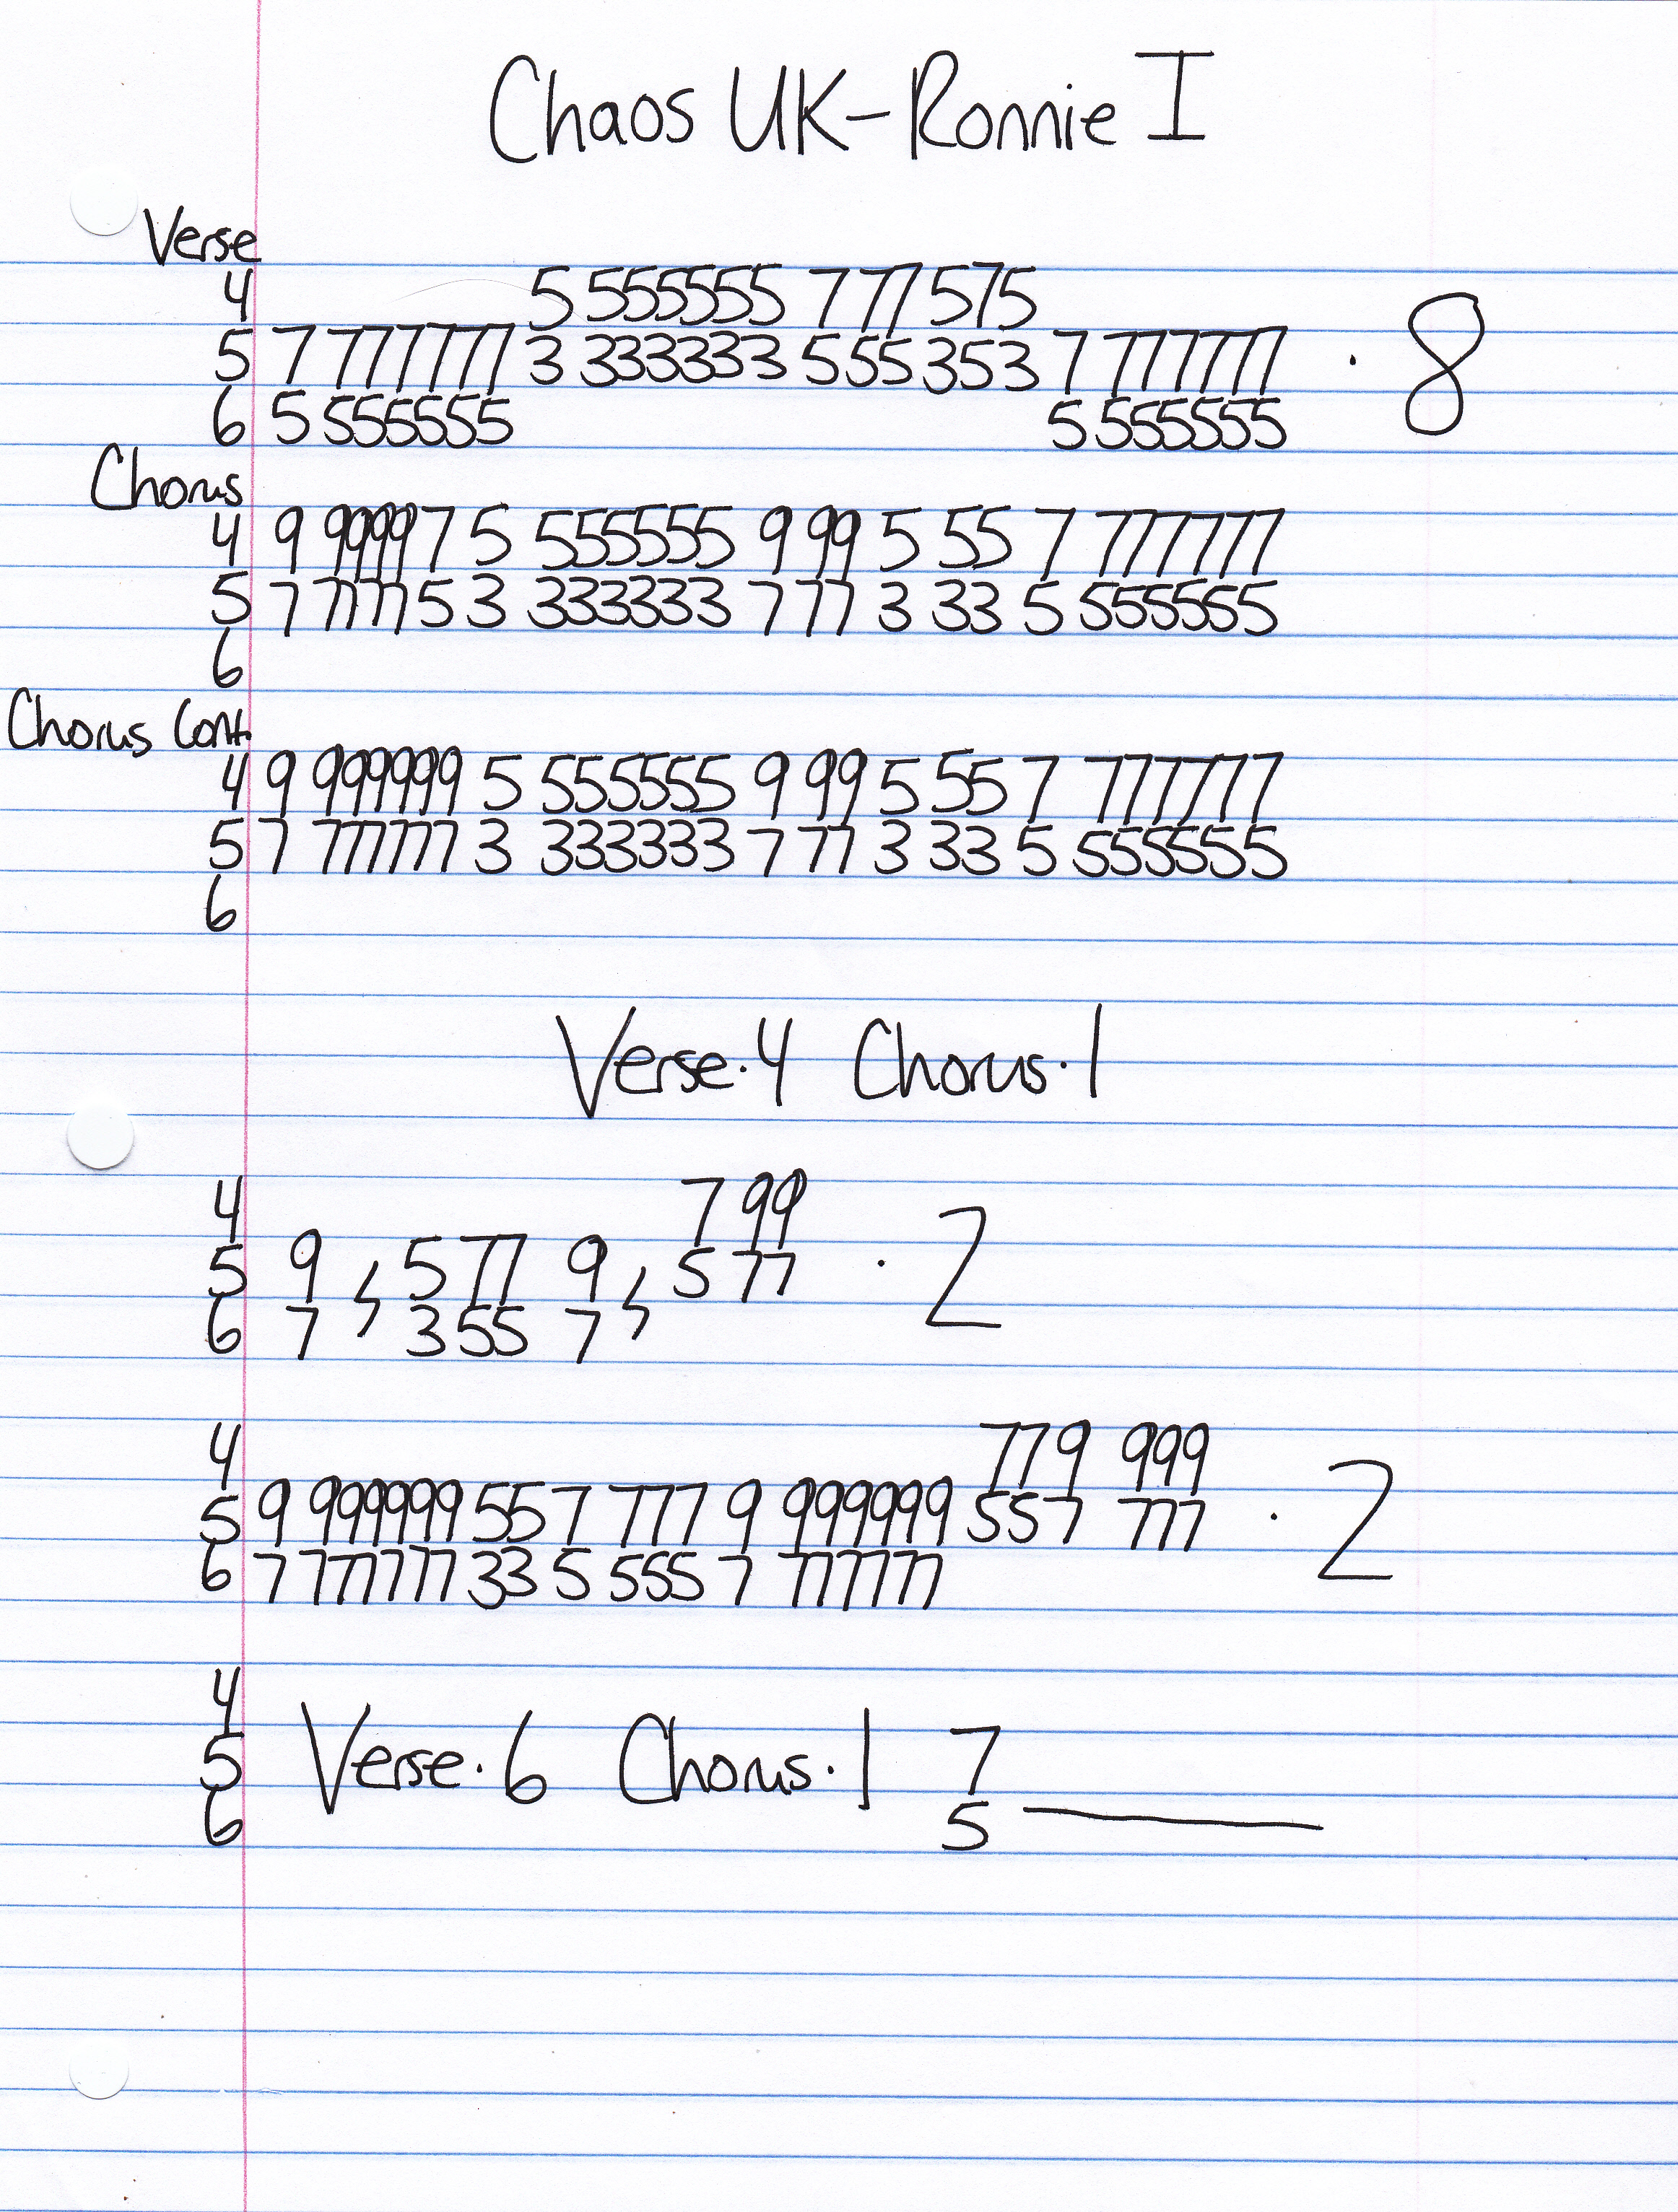 Chaos UK-Ronnie I
Verse
4 5 555555 777 575
5 7 777777 3 333333 555 353 7 777777 · 8
6 5 555555 5 555555
Chorus
4 9 99997 5 555555 9 99 5 55 7 777777
5 7 77775 3 333333 7 77 3 33 5 555555
6
Chorus Cont.
4 9 999999 5 555555 9 99 5 55 7 777777
5 7 777777 3 333333 7 77 3 33 5 555555
6
Verse·4 Chorus·1
4 7 99
5 9 , 5 77 9 , 5 77 · 2
6 7 3 55 7
4 779 999
5 9 999999 55 7 777 9 999999 557 777 · 2
6 7 777777 33 5 555 7 777777
4
5 Verse·6 Chorus·1 7
6 5